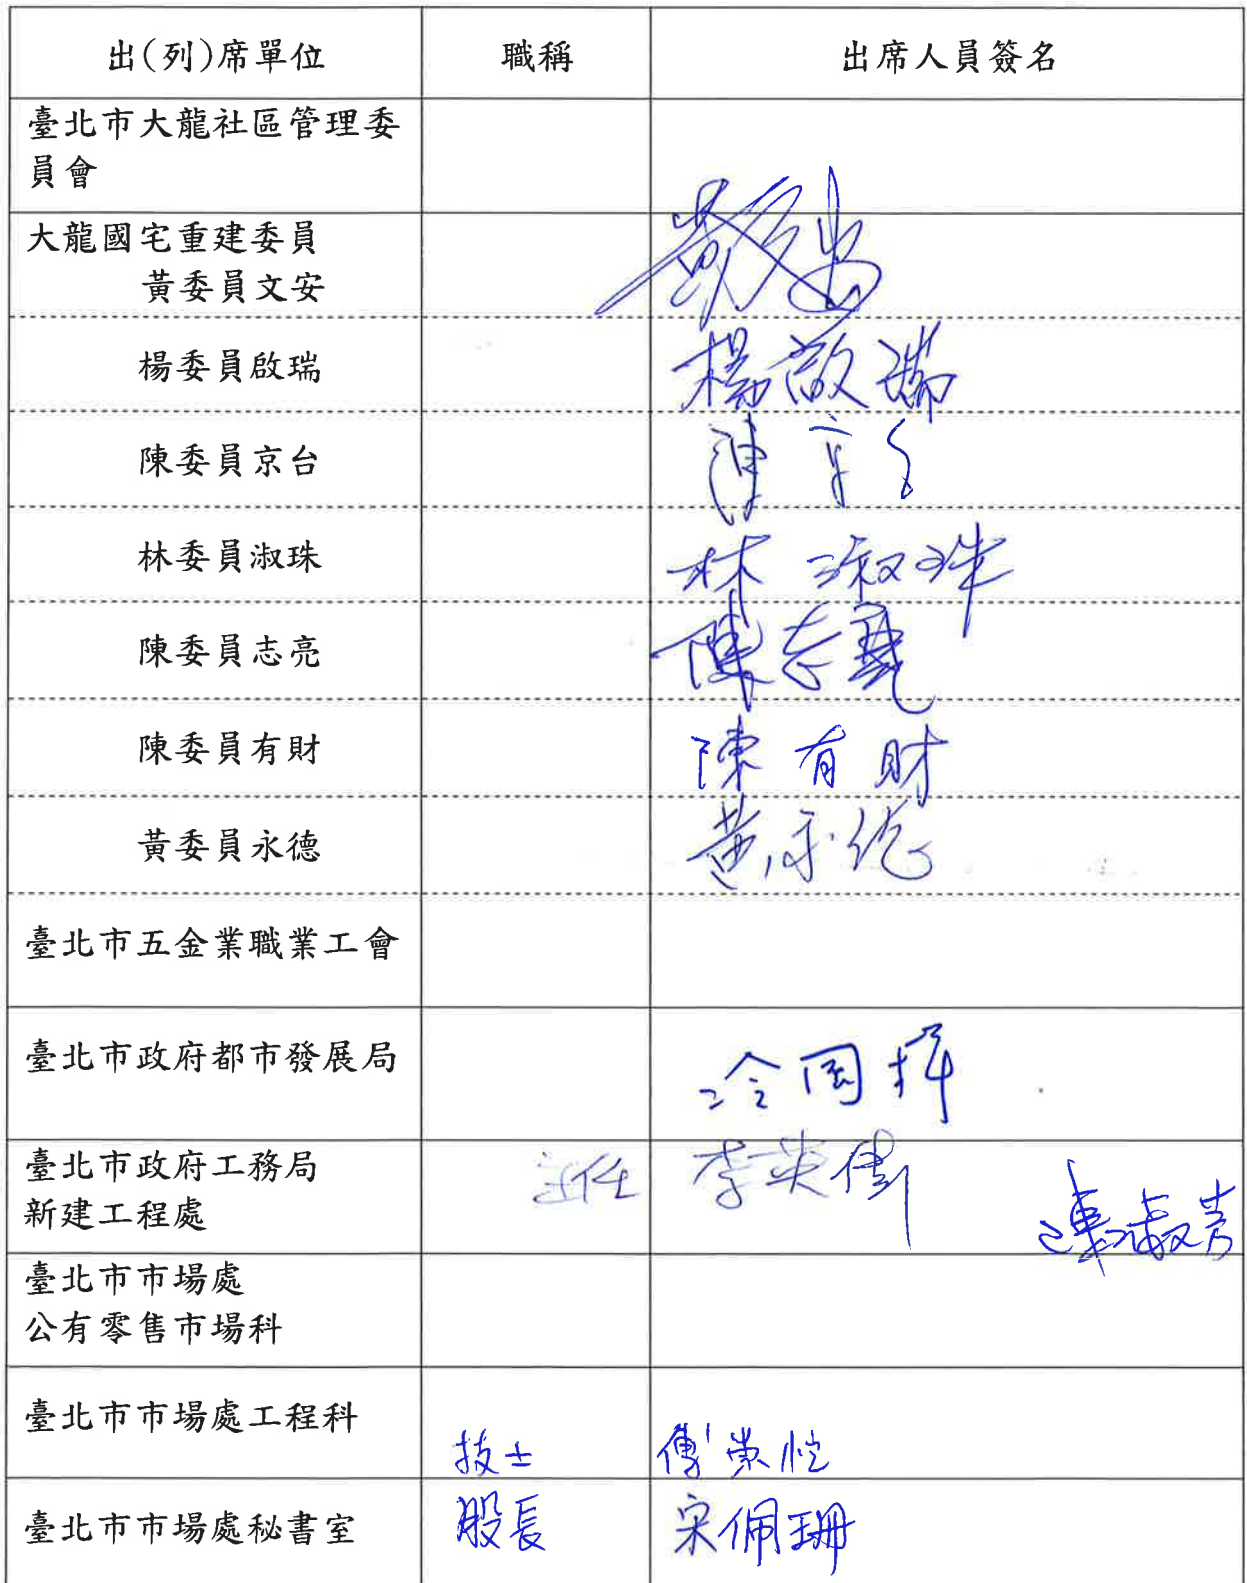 出(列)席單位 職稱 出席人員簽名
臺北市大龍社區管理委
員會
大龍國宅重建委員
黃委員文安 黃文安
楊委員啟瑞 楊啟瑞
陳委員京台 陳京台
林委員淑珠 林淑珠
陳委員志亮 陳志亮
陳委員有財 陳有財
黃委員永德 黃永德
臺北市五金業職業工會
臺北市政府都市發展局 冷國輝
臺北市政府工務局
新建工程處 主任 李英偉 陳淑芳
臺北市市場處
公有零售市場科
臺北市市場處工程科 技士
臺北市市場處秘書室 股長 宋佩珊